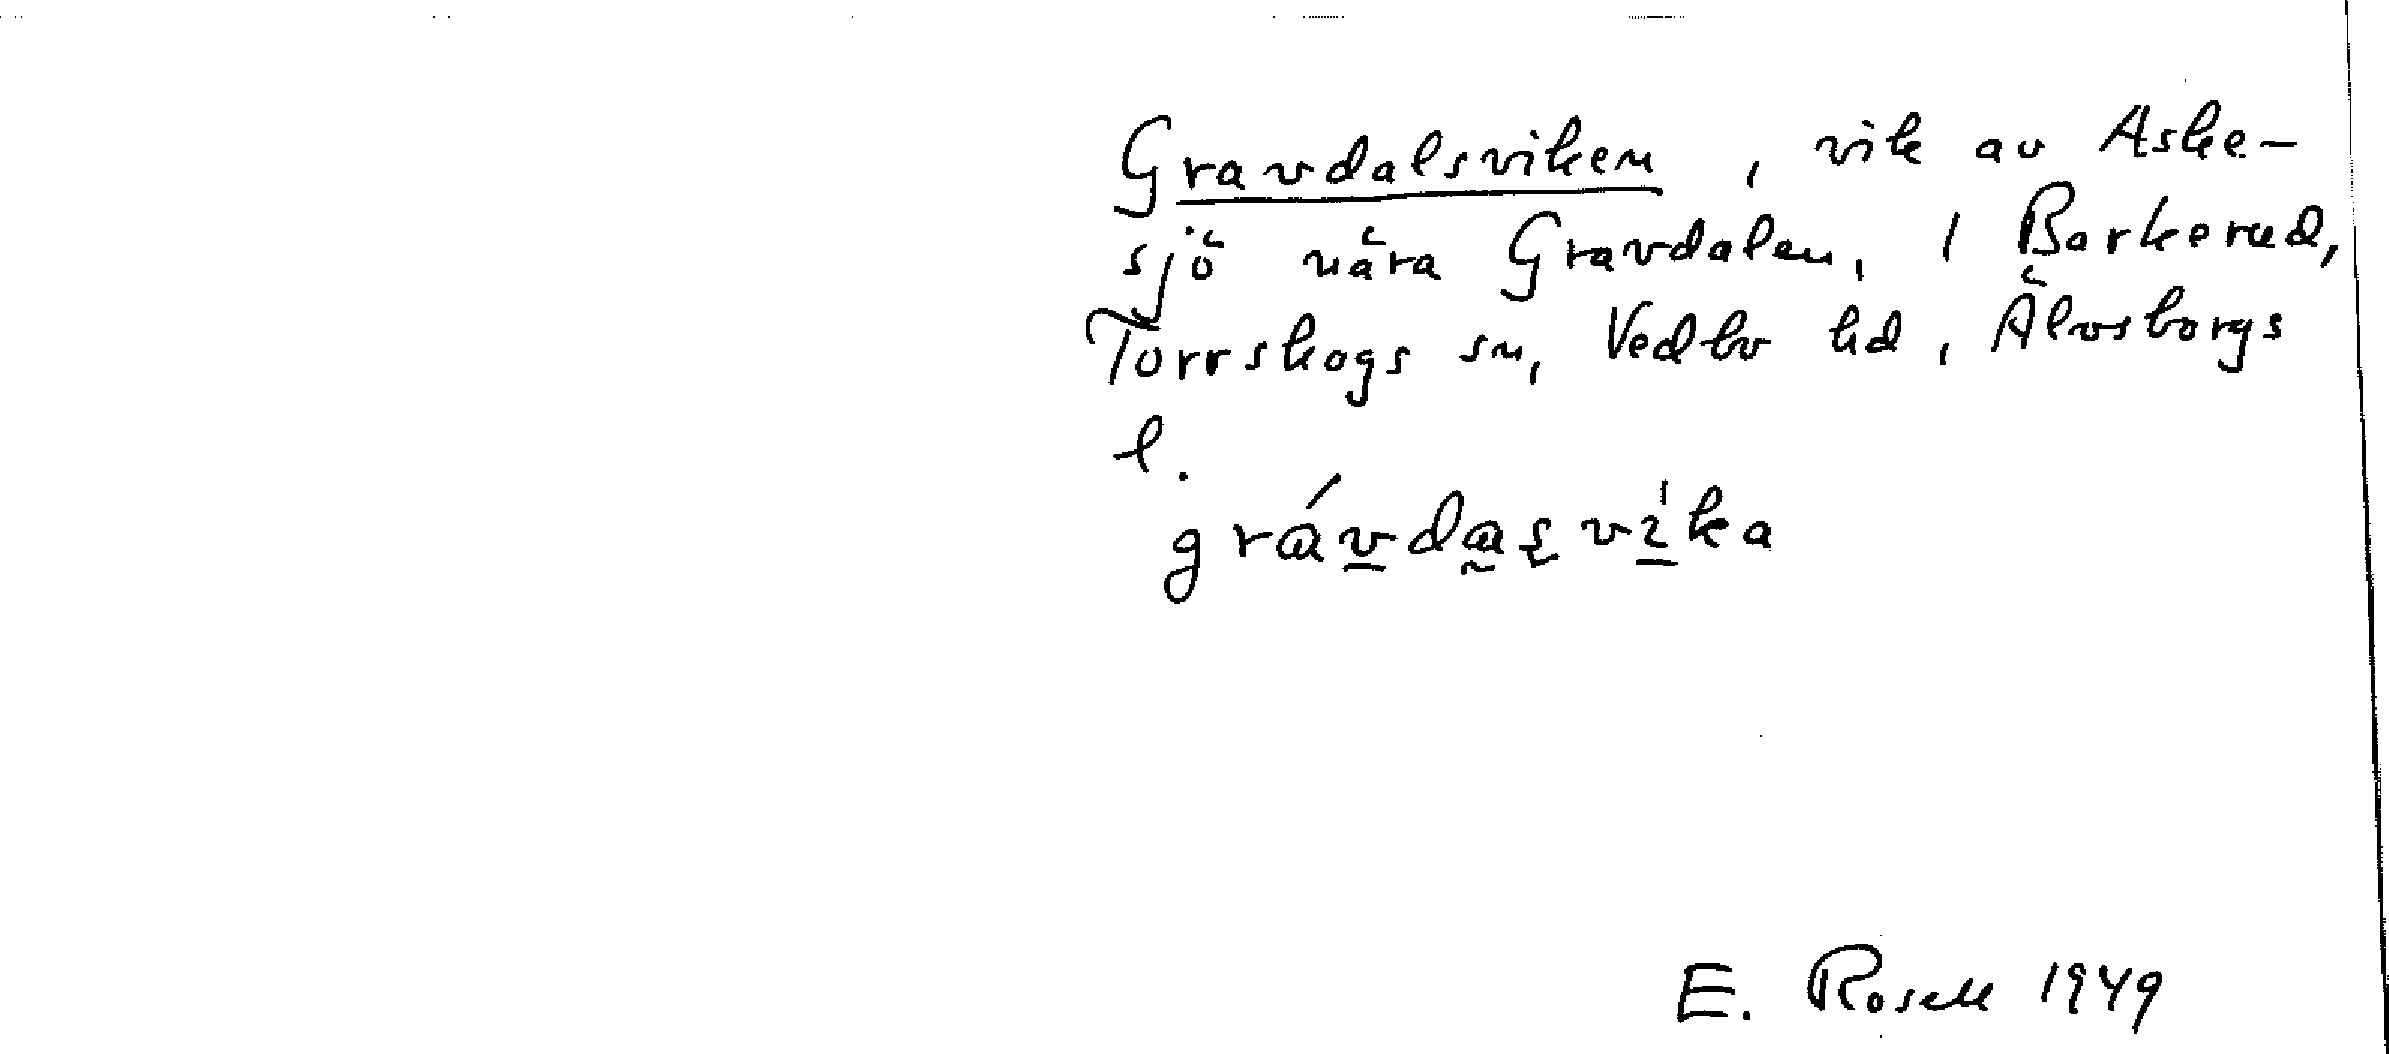 Gravdalsviken, vik av Aske-
sjö nära Gravdalen, 1 Barkerud,
Torrskogs sn, Vedbo hd, Älvsborgs
l.
grávdasvíka
E. Rosell 1949